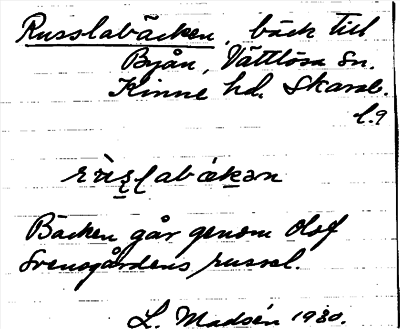 Russlabäcken, bäck till
Byån, Vättlösa sn.
Kinne hd. Skarab.
l.9
Bäcken går genom Olof
Svensgårdens russel.
L. Madsén 1930.